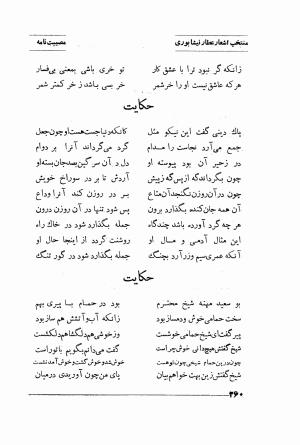 منتخب اشعار عطار نیشابوری مصیبت نامه
زانکه گر نبود ترا با عشق کار تو خری باشی بمعنی بی‌فسار
هر که عاشق نیست او را خر شمر خر بسی باشد ز خر کمتر شمر
حکایت
پاك دینی گفت این نیکو مثل کانکه دنیا جست هست او چون جعل
جمع می‌آرد نجاست را مدام گرد می‌گرداند آنرا بر دوام
در زحیر آن بود پیوسته او دل در آن سرگین بصد جان بسته او
چون بگرداند که از پس گه ز پیش آردش تا بر در سوراخ خویش
چون در آن روزن نگنجد آن متاع بر در روزن کند آنرا وداع
آن همه جان کنده بگذارد برون پس شود تنها در آن روزن درون
هر چه گرد آورده باشد چندگاه جمله بگذارد شود در خاك راه
این مثال آدمی و مال او روشنت گردد از اینجا حال او
آنکه عمری سیم و زر آرد بچنگ جمله بگذارد شود در گور تنگ
حکایت
بو سعید مهنه شیخ محترم بود در حمام با پیری بهم
سخت حمامی خوش و دمساز بود زانکه آب و آتشش هم ساز بود
پیر گفت ای شیخ حمامی خوشست وز خوشی هم دلگشا هم دلکشست
شیخ گفتش هیچ دانی خوش چراست گفت می‌دانم بگویم با تو راست
چون در این حمام شیخی چون تو هست خوش شد و خوش گشت و خوش آمد نشست
شیخ گفتش زین بهت خواهم بیان پای من چون آوریدی در میان
۲۶۰